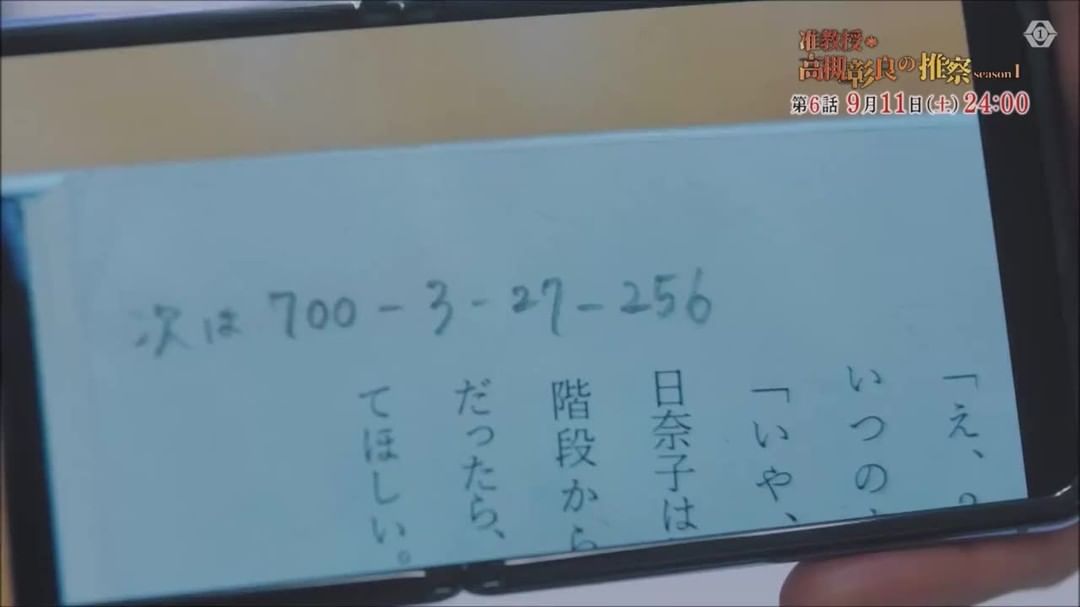 准教授・
高槻彰良の推察 season1
第6話 9月11日(土) 24:00
1
次は 700-3-27-256
「え、
いつの
「いや、
日奈子は
階段から
だったら、
てほしい。